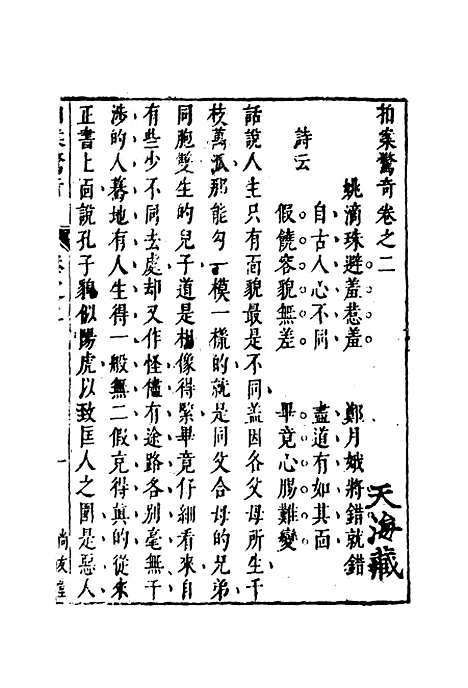 拍案驚奇卷之二
姚滴珠避羞惹羞　鄭月娥將錯就錯
詩云
自古人心不同　盡道有如其面
假饒容貌無差　畢竟心腸難變
話說人生只有面貌最是不同蓋因各父母所生千
枝萬派那能勾一模一樣的就是同父合母的兄弟
同胞雙生的兒子道是相像得緊畢竟仔細看來自
有些少不同去處却又作怪儘有途路各別毫無干
涉的人驀地有人生得一般無二假充得真的從來
正書上面說孔子貌似陽虎以致匡人之圍是惡人
卷之二
一
尚友堂
天海藏